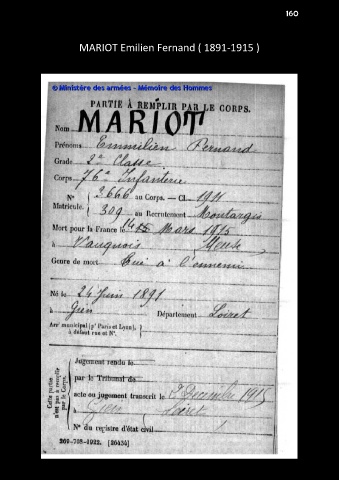 160
MARIOT Emilien Fernand ( 1891-1915 )
© Ministère des armées - Mémoire des Hommes
PARTIE À REMPLIR PAR LE CORPS.
Nom MARIOT
Prénoms Emmilien Fernand
Grade 2e Classe
Corps 76e Infanterie
N° 3.666 au Corps. — Cl. 1911
Matricule. 309 au Recrutement Montargis
Mort pour la France le Mars 1915
à Vauquois Meuse
Genre de mort Tué à l'ennemi
Né le 24 Juin 1891
à Gien Département Loiret
Arrt municipal (pr Paris et Lyon),
à défaut rue et N°.
Cette partie
n'est pas à remplir
par le Corps.
Jugement rendu le
par le Tribunal de
acte ou jugement transcrit le 2 Decembre 1915
à Gien Loiret
N° du registre d'état civil
269-708-1922. [26434]